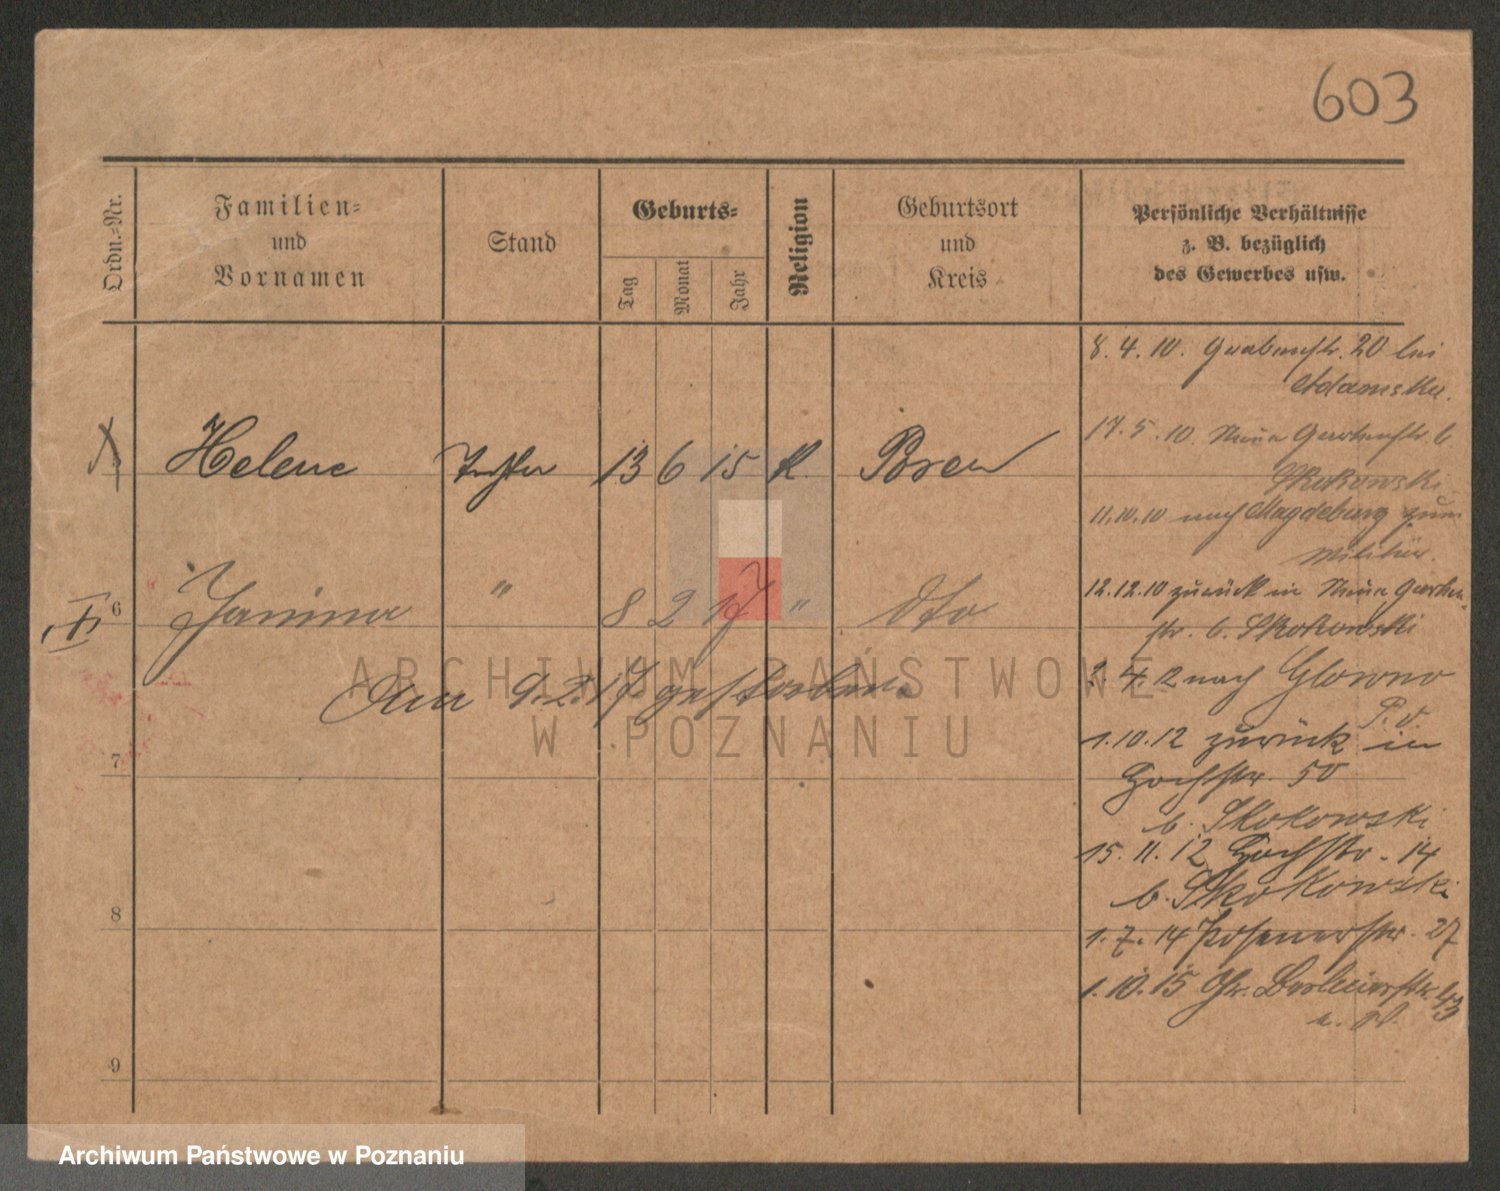 603
Ordn.-Nr.
Familien-
und
Vornamen
Stand
Geburts-
Tag
Monat
Jahr
Religion
Geburtsort
und
Kreis
Persönliche Verhältnisse
z. B. bezüglich
des Gewerbes usw.
8. 4. 10. Grabenstr. 20 bei
Adamska.
17. 5. 10. Neue Gartenstr. b
Skokowski
Helene Tochter 13 6 15 K. Posen
11.10.10 nach Magdeburg zum
Militär.
12.12.10 zurück in Neue Garten
str. b. Skokowski
6 Janina " 8 2 17 " dto
2. 4. 12 nach Glowno
P. O.
am 9.2.17 gestorben.
1.10.12 zurück in
Hochstr. 50
b. Skokowski
7
15. 11. 12 Hochstr. 14
b. Skokowski
8
1. 7. 14 Posenerstr. 27
1. 10. 15 Gr. Berlinerstr. 43
9
ARCHIWUM PAŃSTWOWE
W POZNANIU
Archiwum Państwowe w Poznaniu